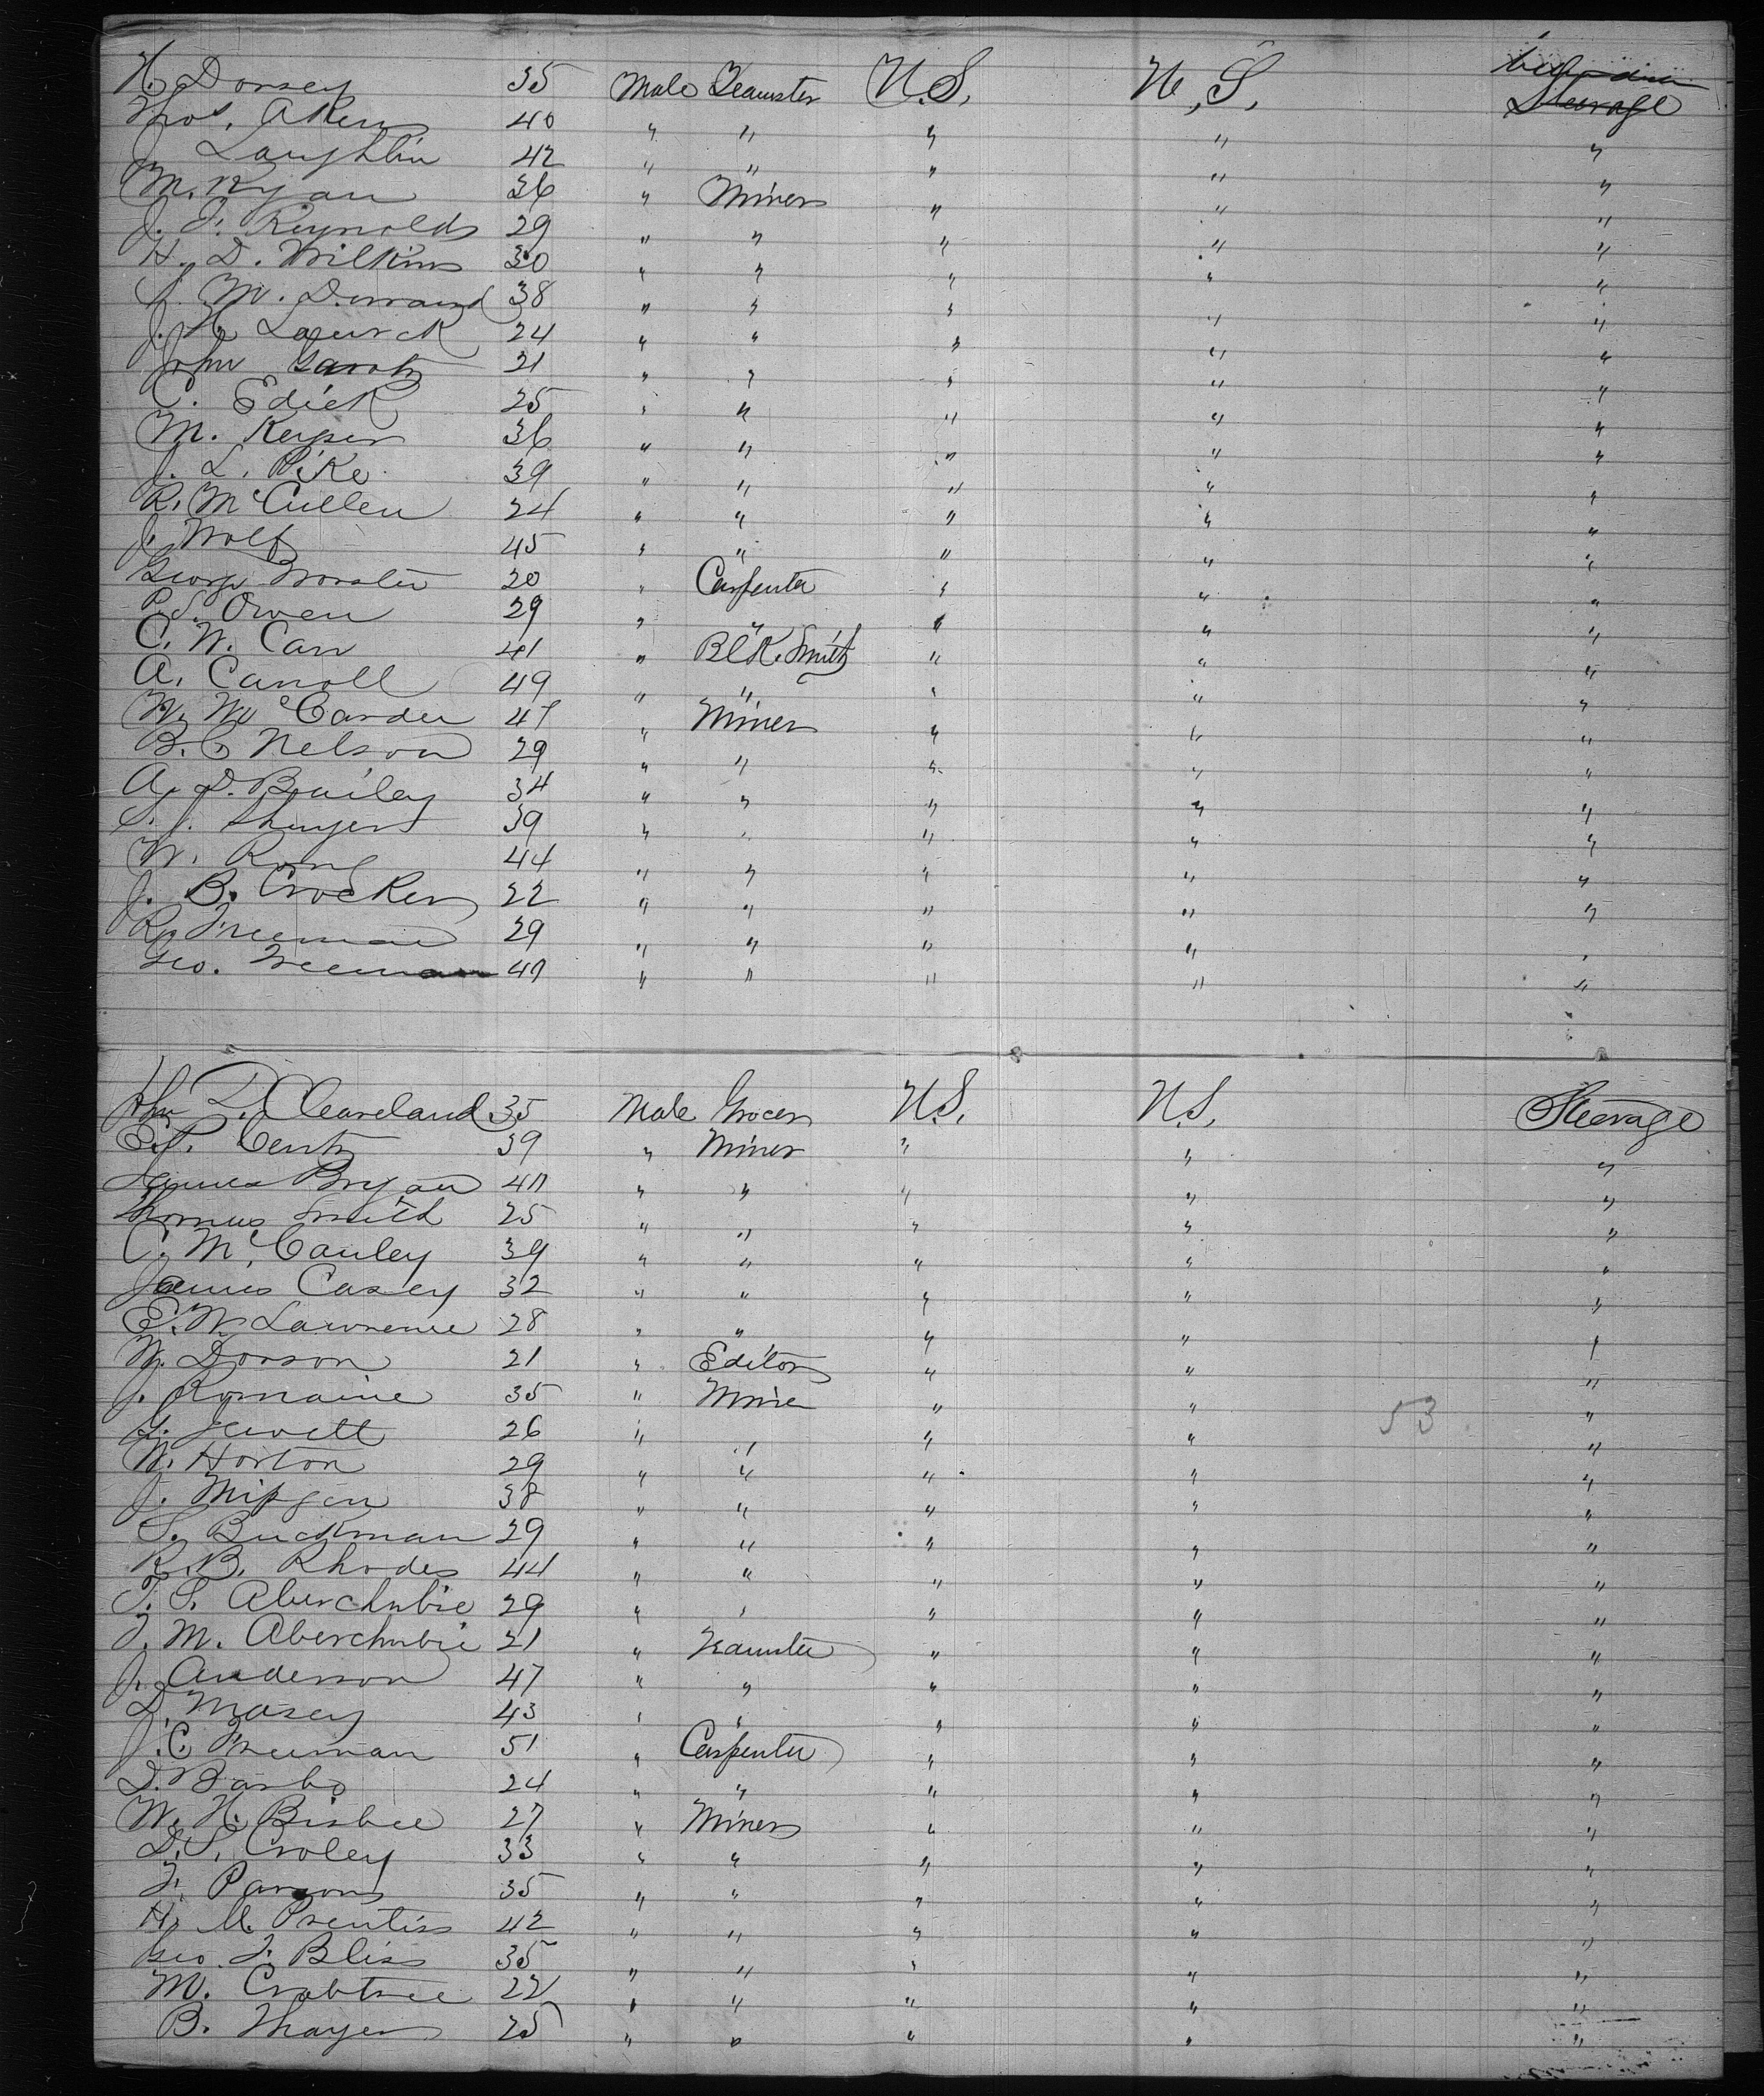 H. Dorsey 35 Male Teamster U.S. U.S. Steerage
Thos. Akers 40 " " " " "
J. Laughlin 42 " " " " "
M. Ryan 36 " Miner " " "
J. F. Reynolds 29 " " " " "
H. D. Wilkins 30 " " " " "
M. 38 " " " " "
J. H. 24 " " " " "
John 21 " " " " "
C. Edick 25 " " " " "
M. Keyser 36 " " " " "
J. L. Pike 39 " " " " "
R. McCullen 24 " " " " "
J. Wolf 45 " " " " "
George 20 " Carpenter " " "
P. S. Owen 29 " " " " "
C. W. Carr 41 " Blk. Smith " " "
A. Carroll 49 " " " " "
W. 47 " Miner " " "
B. C. Nelson 29 " " " " "
A. D. Bailey 34 " " " " "
S. J. 39 " " " " "
W. 44 " " " " "
J. B. Crocker 22 " " " " "
R. Freeman 29 " " " " "
Geo. Freeman " " " " "
John D. Cleaveland 35 Male Grocer U.S. U.S. Steerage
E. P. Centz 39 " Miner " " "
James Bryan " " " " "
Thomas Smith 25 " " " " "
C. McCauley 39 " " " " "
James Casey 32 " " " " "
E. W. Lawrence 28 " " " " "
W. Dorson 21 " Editor " " "
J. Romaine 35 " Miner " " "
53
Jewett 26 " " " " "
W. Horton 29 " " " " "
J. 38 " " " " "
S. Buckman 29 " " " " "
R. B. Rhodes 44 " " " " "
T. S. Aberchrbie 29 " " " " "
J. M. Aberchrbie 21 " Teamster " " "
J. Anderson 47 " " " " "
D. Masey 43 " " " " "
J. C. Freeman 51 " Carpenter " " "
D. 24 " " " " "
W. H. Bisbee 27 " Miner " " "
D. S. Croley 33 " " " " "
J. Parsons 35 " " " " "
H. M. Prentiss 42 " " " " "
Geo. F. Bliss 35 " " " " "
M. Crabtree 22 " " " " "
B. Thayer 25 " " " " "